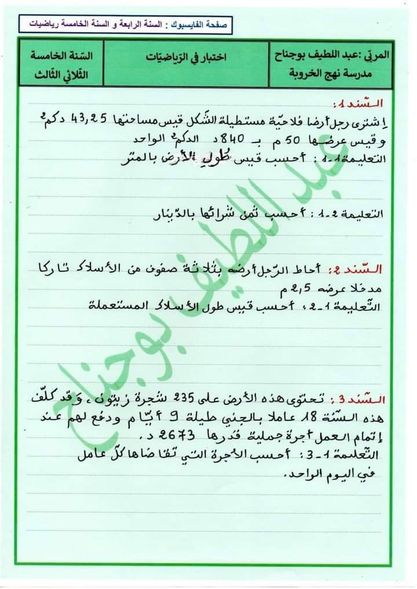 صفحة الفايسبوك : السنة الرابعة و السنة الخامسة رياضيات
المربّي : عبد اللطيف بوجناح
مدرسة نهج الخروبة
اختبار في الرّياضيّات
السّنة الخامسة
الثّلاثي الثّالث
السّند 1: إشترى رجل أرضا فلاحيّة مستطيلة الشّكل قيس مساحتها 43,25 دكم²
و قيس عرضها 50 م بـ 840 د الدكم² الواحد
التعليمة 1-1 : أحسب قيس طول الأرض بالمتر
التعليمة 2-1 : أحسب ثمن شرائها بالدّينار
السّند 2: أحاط الرّجل أرضه بثلاثة صفوف من الأسلاك تاركا
مدخلا عرضه 2,5 م
التّعليمة 1-2 : أحسب قيس طول الأسلاك المستعملة
السّند 3: تحتوي هذه الأرض على 235 شجرة زيتون ، وقد كلّف
هذه السّنة 18 عاملا بالجني طيلة 9 أيّام و دفع لهم عند
إتمام العمل أجرة جملية قدرها 2673 د.
التّعليمة 1-3 : أحسب الأجرة التي تقاضاها كلّ عامل
في اليوم الواحد.
عبد اللطيف بوجناح